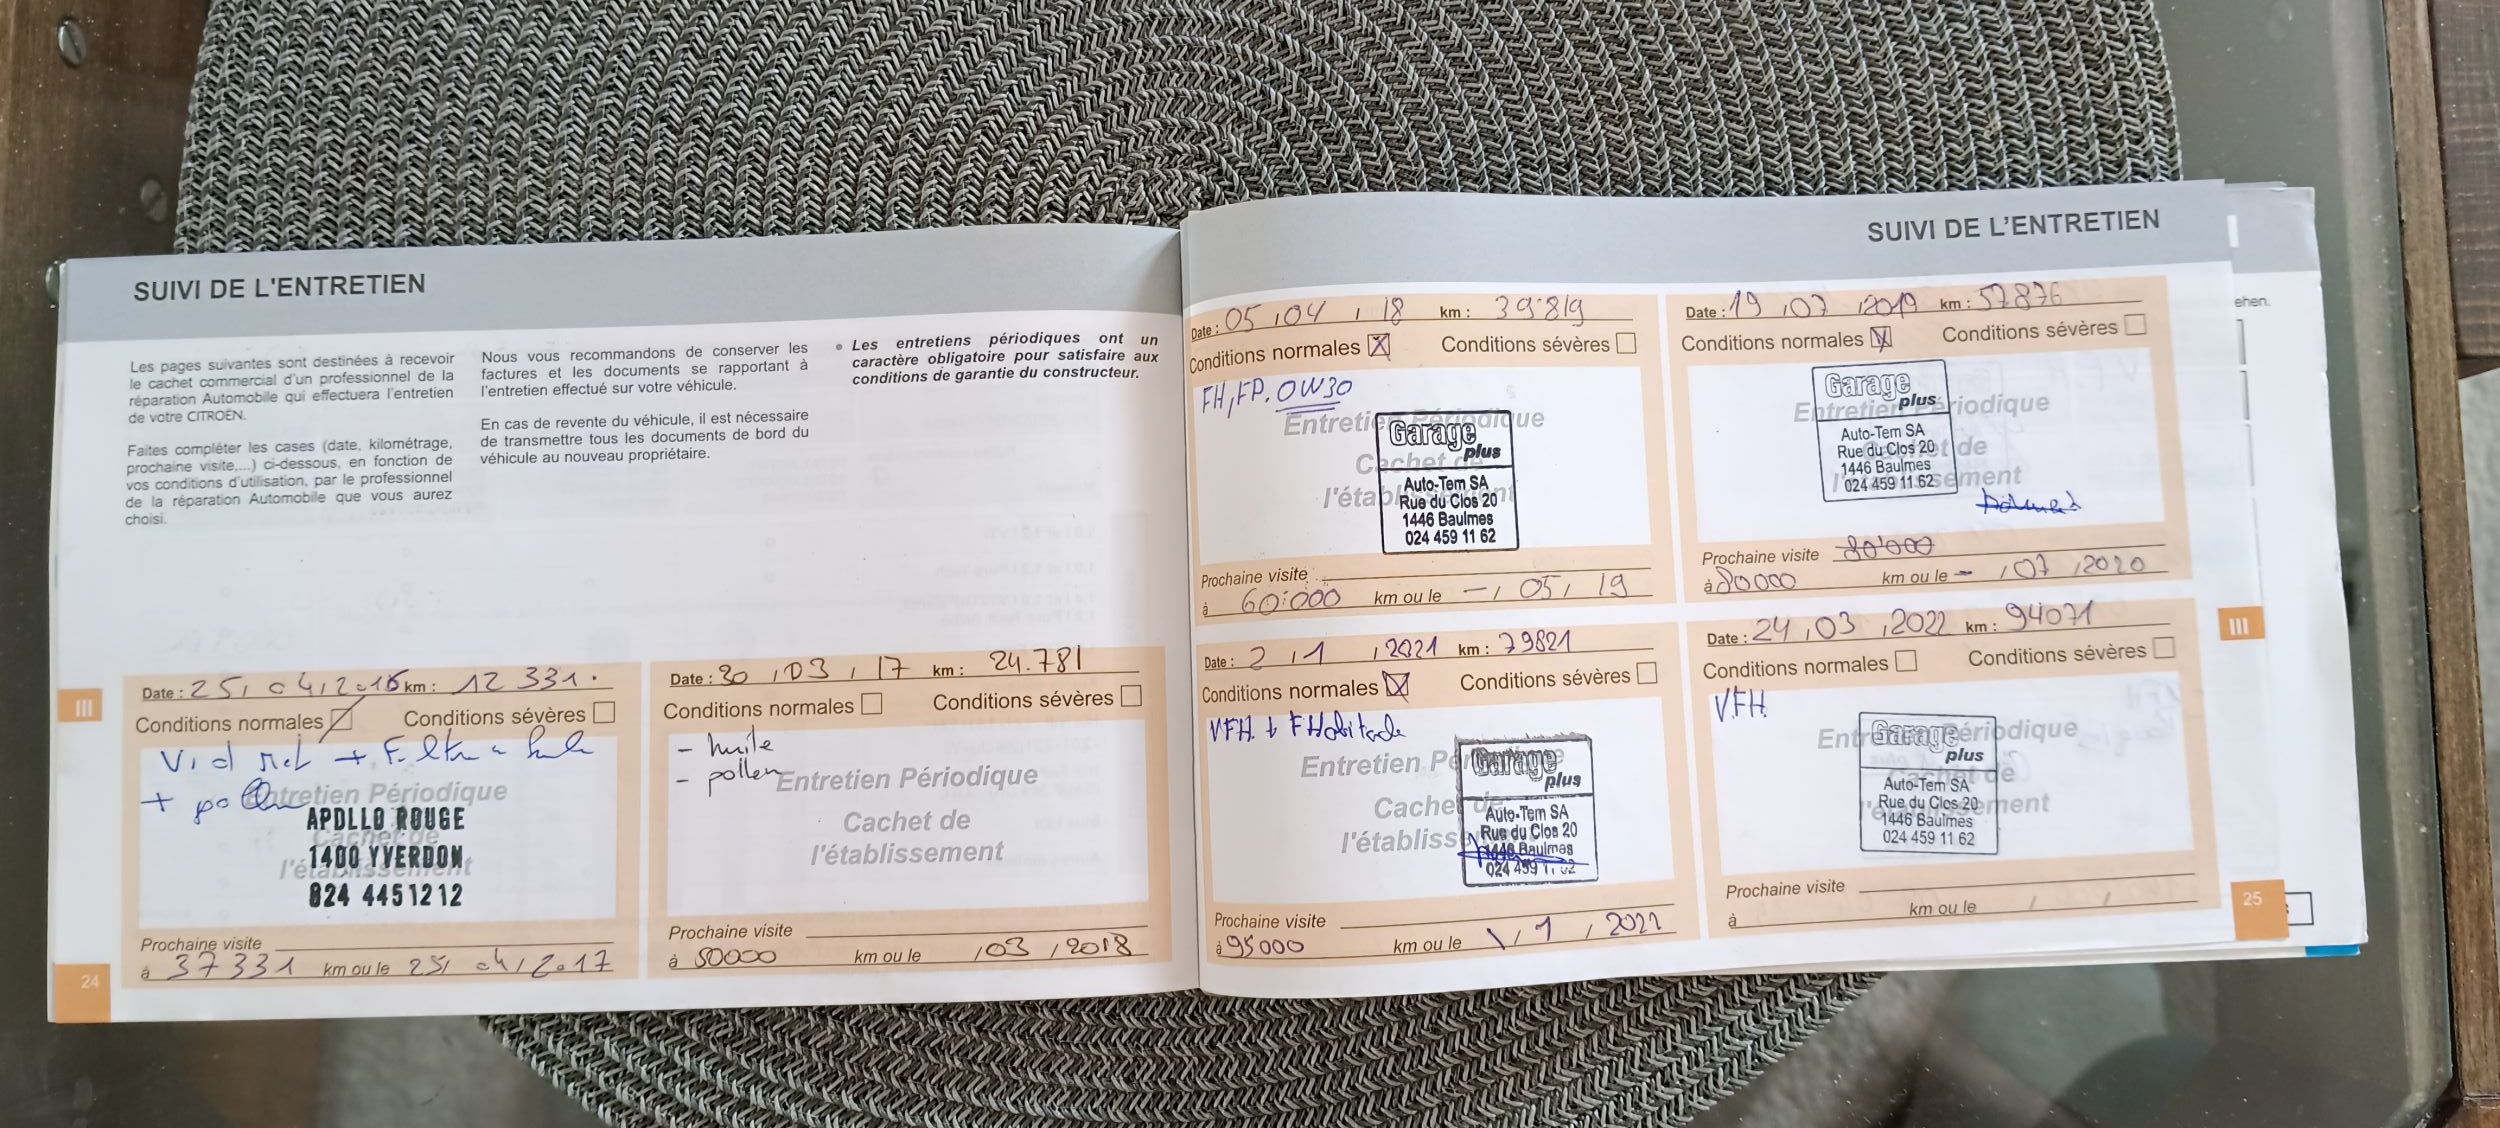 SUIVI DE L'ENTRETIEN
Les pages suivantes sont destinées à recevoir
le cachet commercial d'un professionnel de la
réparation Automobile qui effectuera l'entretien
de votre CITROËN.
Faites compléter les cases (date, kilométrage,
prochaine visite,...) ci-dessous, en fonction de
vos conditions d'utilisation, par le professionnel
de la réparation Automobile que vous aurez
choisi.
Nous vous recommandons de conserver les
factures et les documents se rapportant à
l'entretien effectué sur votre véhicule.
En cas de revente du véhicule, il est nécessaire
de transmettre tous les documents de bord du
véhicule au nouveau propriétaire.
• Les entretiens périodiques ont un
caractère obligatoire pour satisfaire aux
conditions de garantie du constructeur.
III
Date : 25, 04, 2016 km : 12 331.
Conditions normales Conditions sévères
+ Filtre a huile
+ pollen
Entretien Périodique
Cachet de
l'établissement
APOLLO ROUGE
1400 YVERDON
024 4451212
Prochaine visite
à 37331 km ou le 25, 04, 2017
24
Date : 30, 03, 17 km : 24.781
Conditions normales Conditions sévères
- huile
- pollen
Entretien Périodique
Cachet de
l'établissement
Prochaine visite
à 50000 km ou le , 03, 2018
SUIVI DE L'ENTRETIEN
Date : 05, 04, 18 km : 39'819
Conditions normales Conditions sévères
FH, FP. 0W30
Entretien Périodique
Cachet de
l'établissement
Garage
plus
Auto-Tem SA
Rue du Clos 20
1446 Baulmes
024 459 11 62
Prochaine visite
à 60'000 km ou le -, 05, 19
Date : 19, 07, 2019 km : 57876
Conditions normales Conditions sévères
Entretien Périodique
Cachet de
l'établissement
Garage
plus
Auto-Tem SA
Rue du Clos 20
1446 Baulmes
024 459 11 62
Prochaine visite 80'000
à 80000 km ou le -, 07, 2020
Date : 2, 1, 2021 km : 79821
Conditions normales Conditions sévères
VFH + F Habitacle
Entretien Périodique
Cachet de
l'établissement
Garage
plus
Auto-Tem SA
Rue du Clos 20
1446 Baulmes
024 459 11 62
Prochaine visite
à 95000 km ou le \, 1, 2022
Date : 24, 03, 2022 km : 94071
Conditions normales Conditions sévères
VFH
Entretien Périodique
Cachet de
l'établissement
Garage
plus
Auto-Tem SA
Rue du Clos 20
1446 Baulmes
024 459 11 62
Prochaine visite
à km ou le , ,
III
25
ehen.